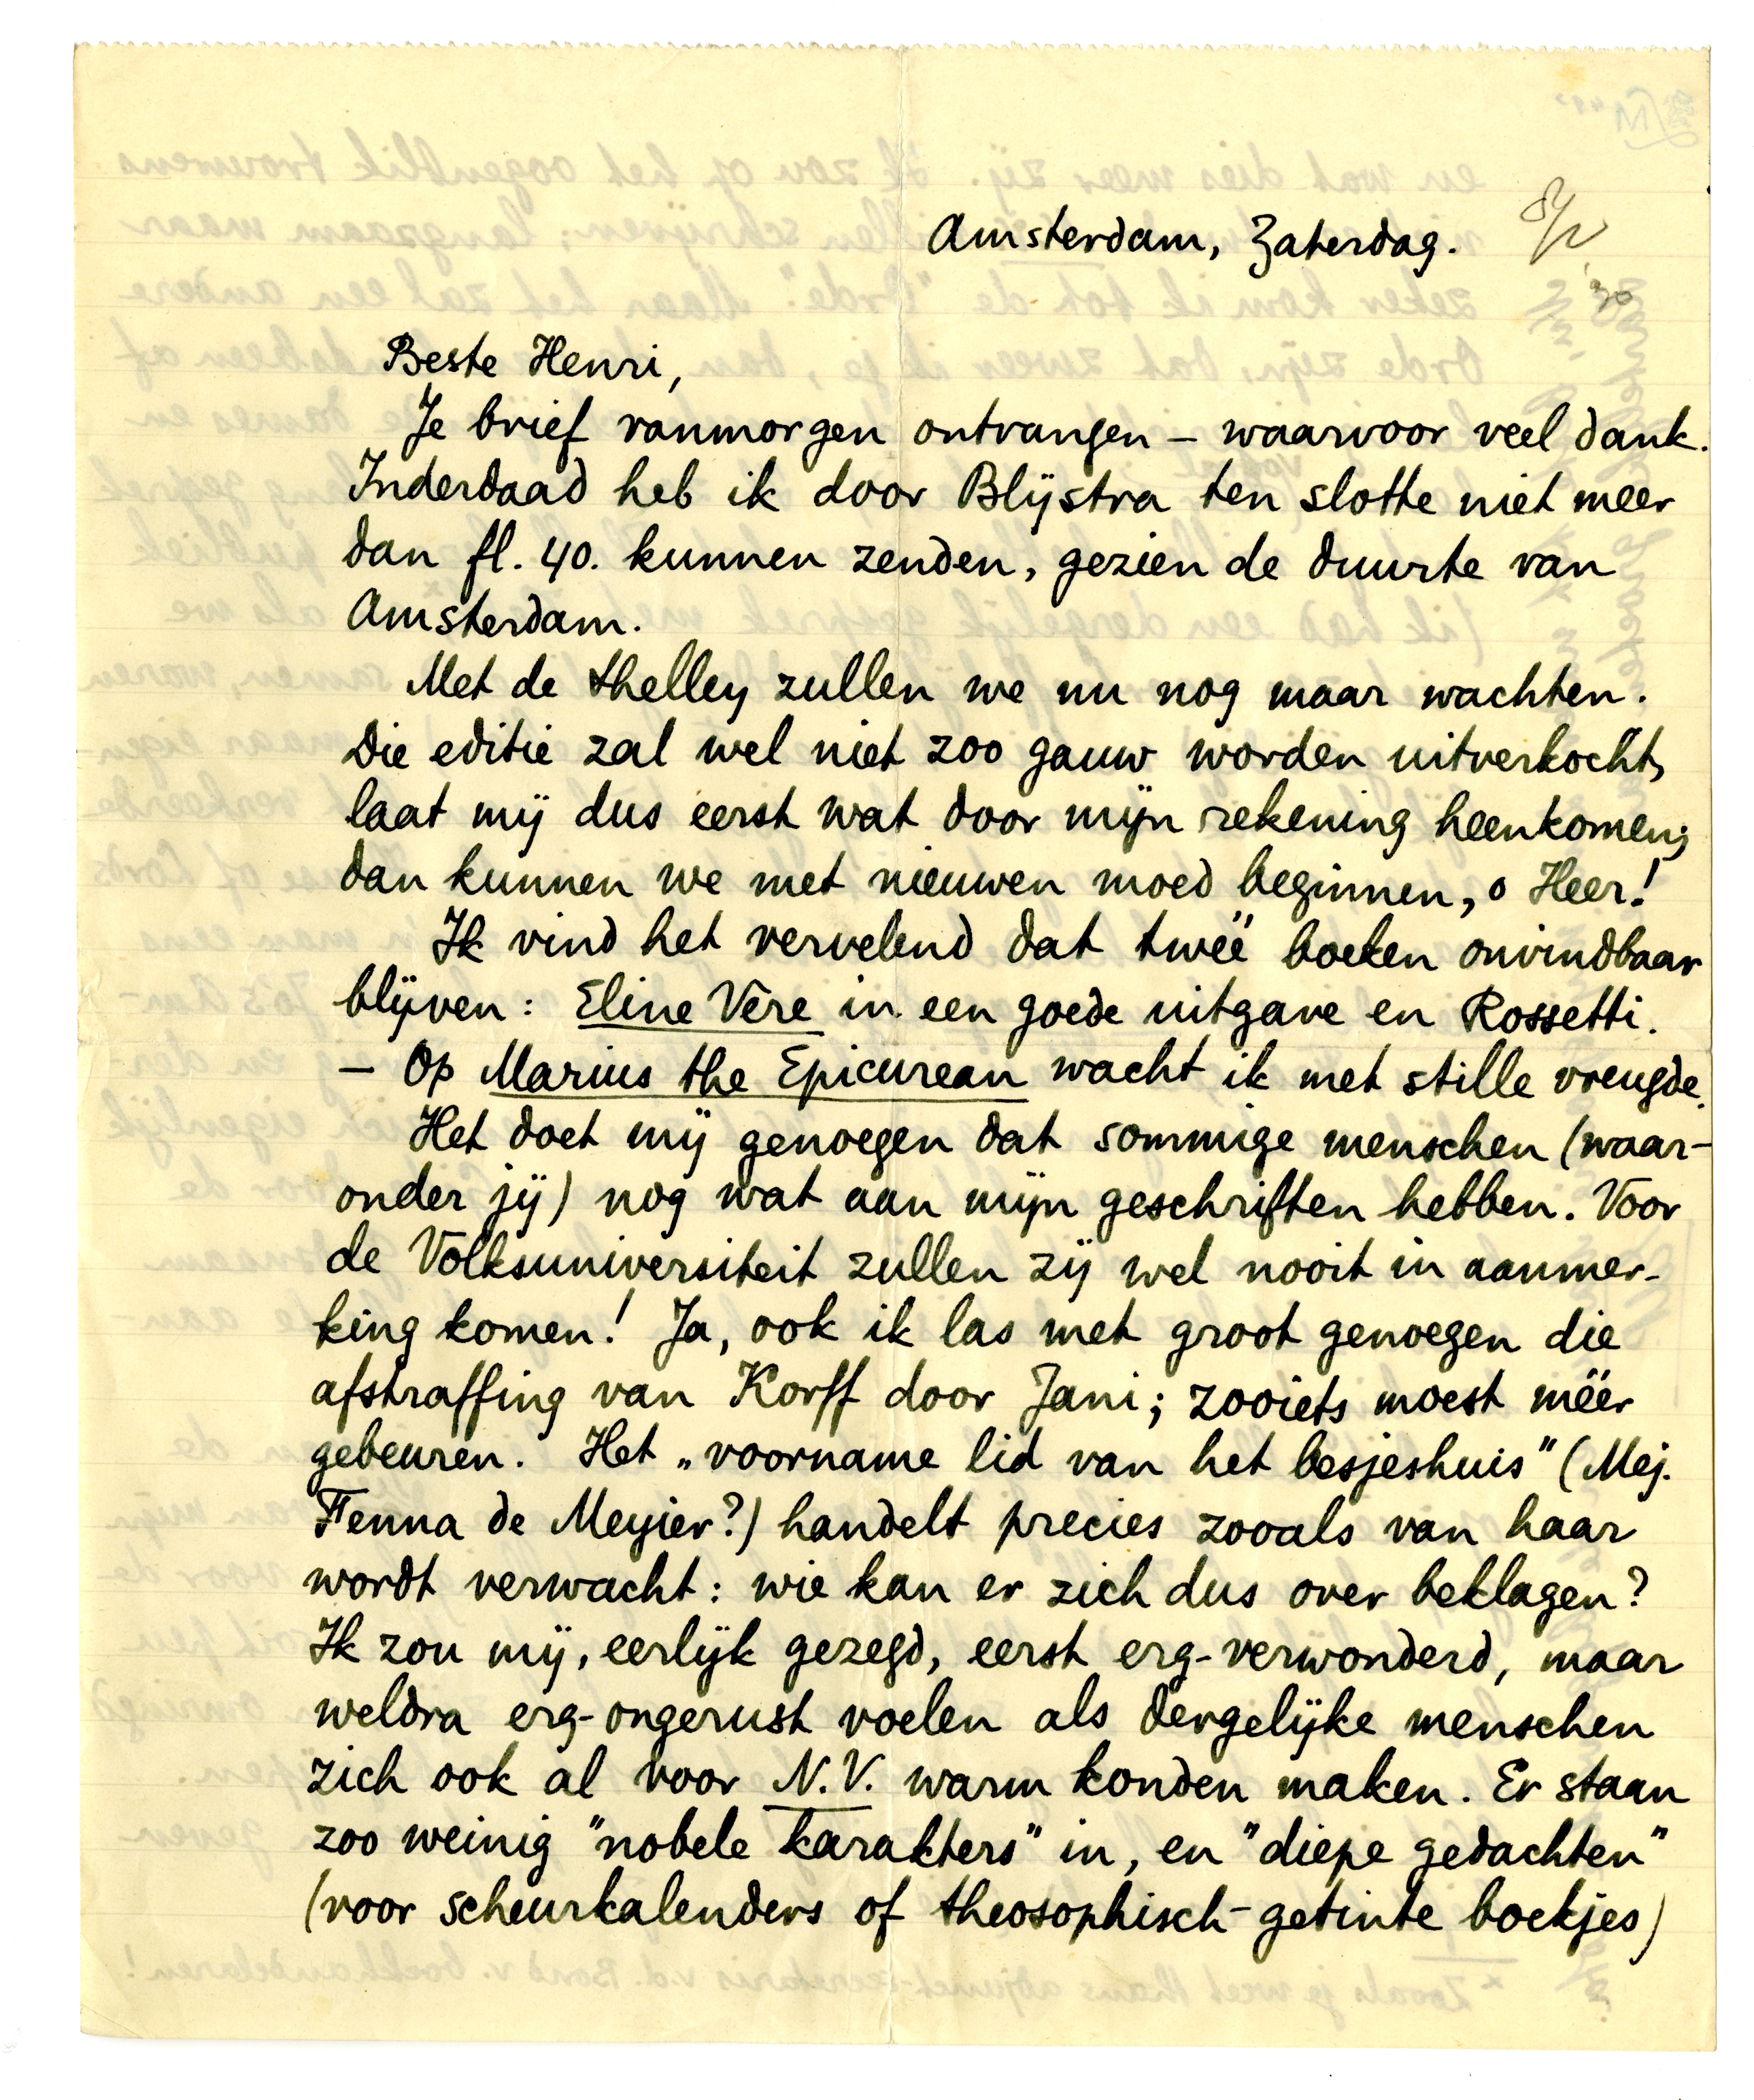 Amsterdam, Zaterdag.
Beste Henri,
Je brief vanmorgen ontvangen – waarvoor veel dank.
Inderdaad heb ik door Blijstra ten slotte niet meer
dan fl. 40. kunnen zenden, gezien de duurte van
Amsterdam.
Met de Shelley zullen we nu nog maar wachten.
Die editie zal wel niet zoo gauw worden uitverkocht,
laat mij dus eerst wat door mijn rekening heenkomen;
dan kunnen we met nieuwen moed beginnen, o Heer!
Ik vind het vervelend dat twee boeken onvindbaar
blijven: Eline Vere in een goede uitgave en Rossetti.
– Op Marius the Epicurean wacht ik met stille vreugde.
Het doet mij genoegen dat sommige menschen (waar-
onder jij) nog wat aan mijn geschriften hebben. Voor
de Volksuniversiteit zullen zij wel nooit in aanmer-
king komen! Ja, ook ik las met groot genoegen die
afstraffing van Korff door Jani; zooiets moest méér
gebeuren. Het „voorname lid van het besjeshuis" (Mej.
Fenna de Meyier?) handelt precies zooals van haar
wordt verwacht: wie kan er zich dus over beklagen?
Ik zou mij, eerlijk gezegd, eerst erg-verwonderd, maar
weldra erg-ongerust voelen als dergelijke menschen
zich ook al voor N.V. warm konden maken. Er staan
zoo weinig "nobele karakters" in, en "diepe gedachten"
(voor scheurkalenders of theosophisch-getinte boekjes)